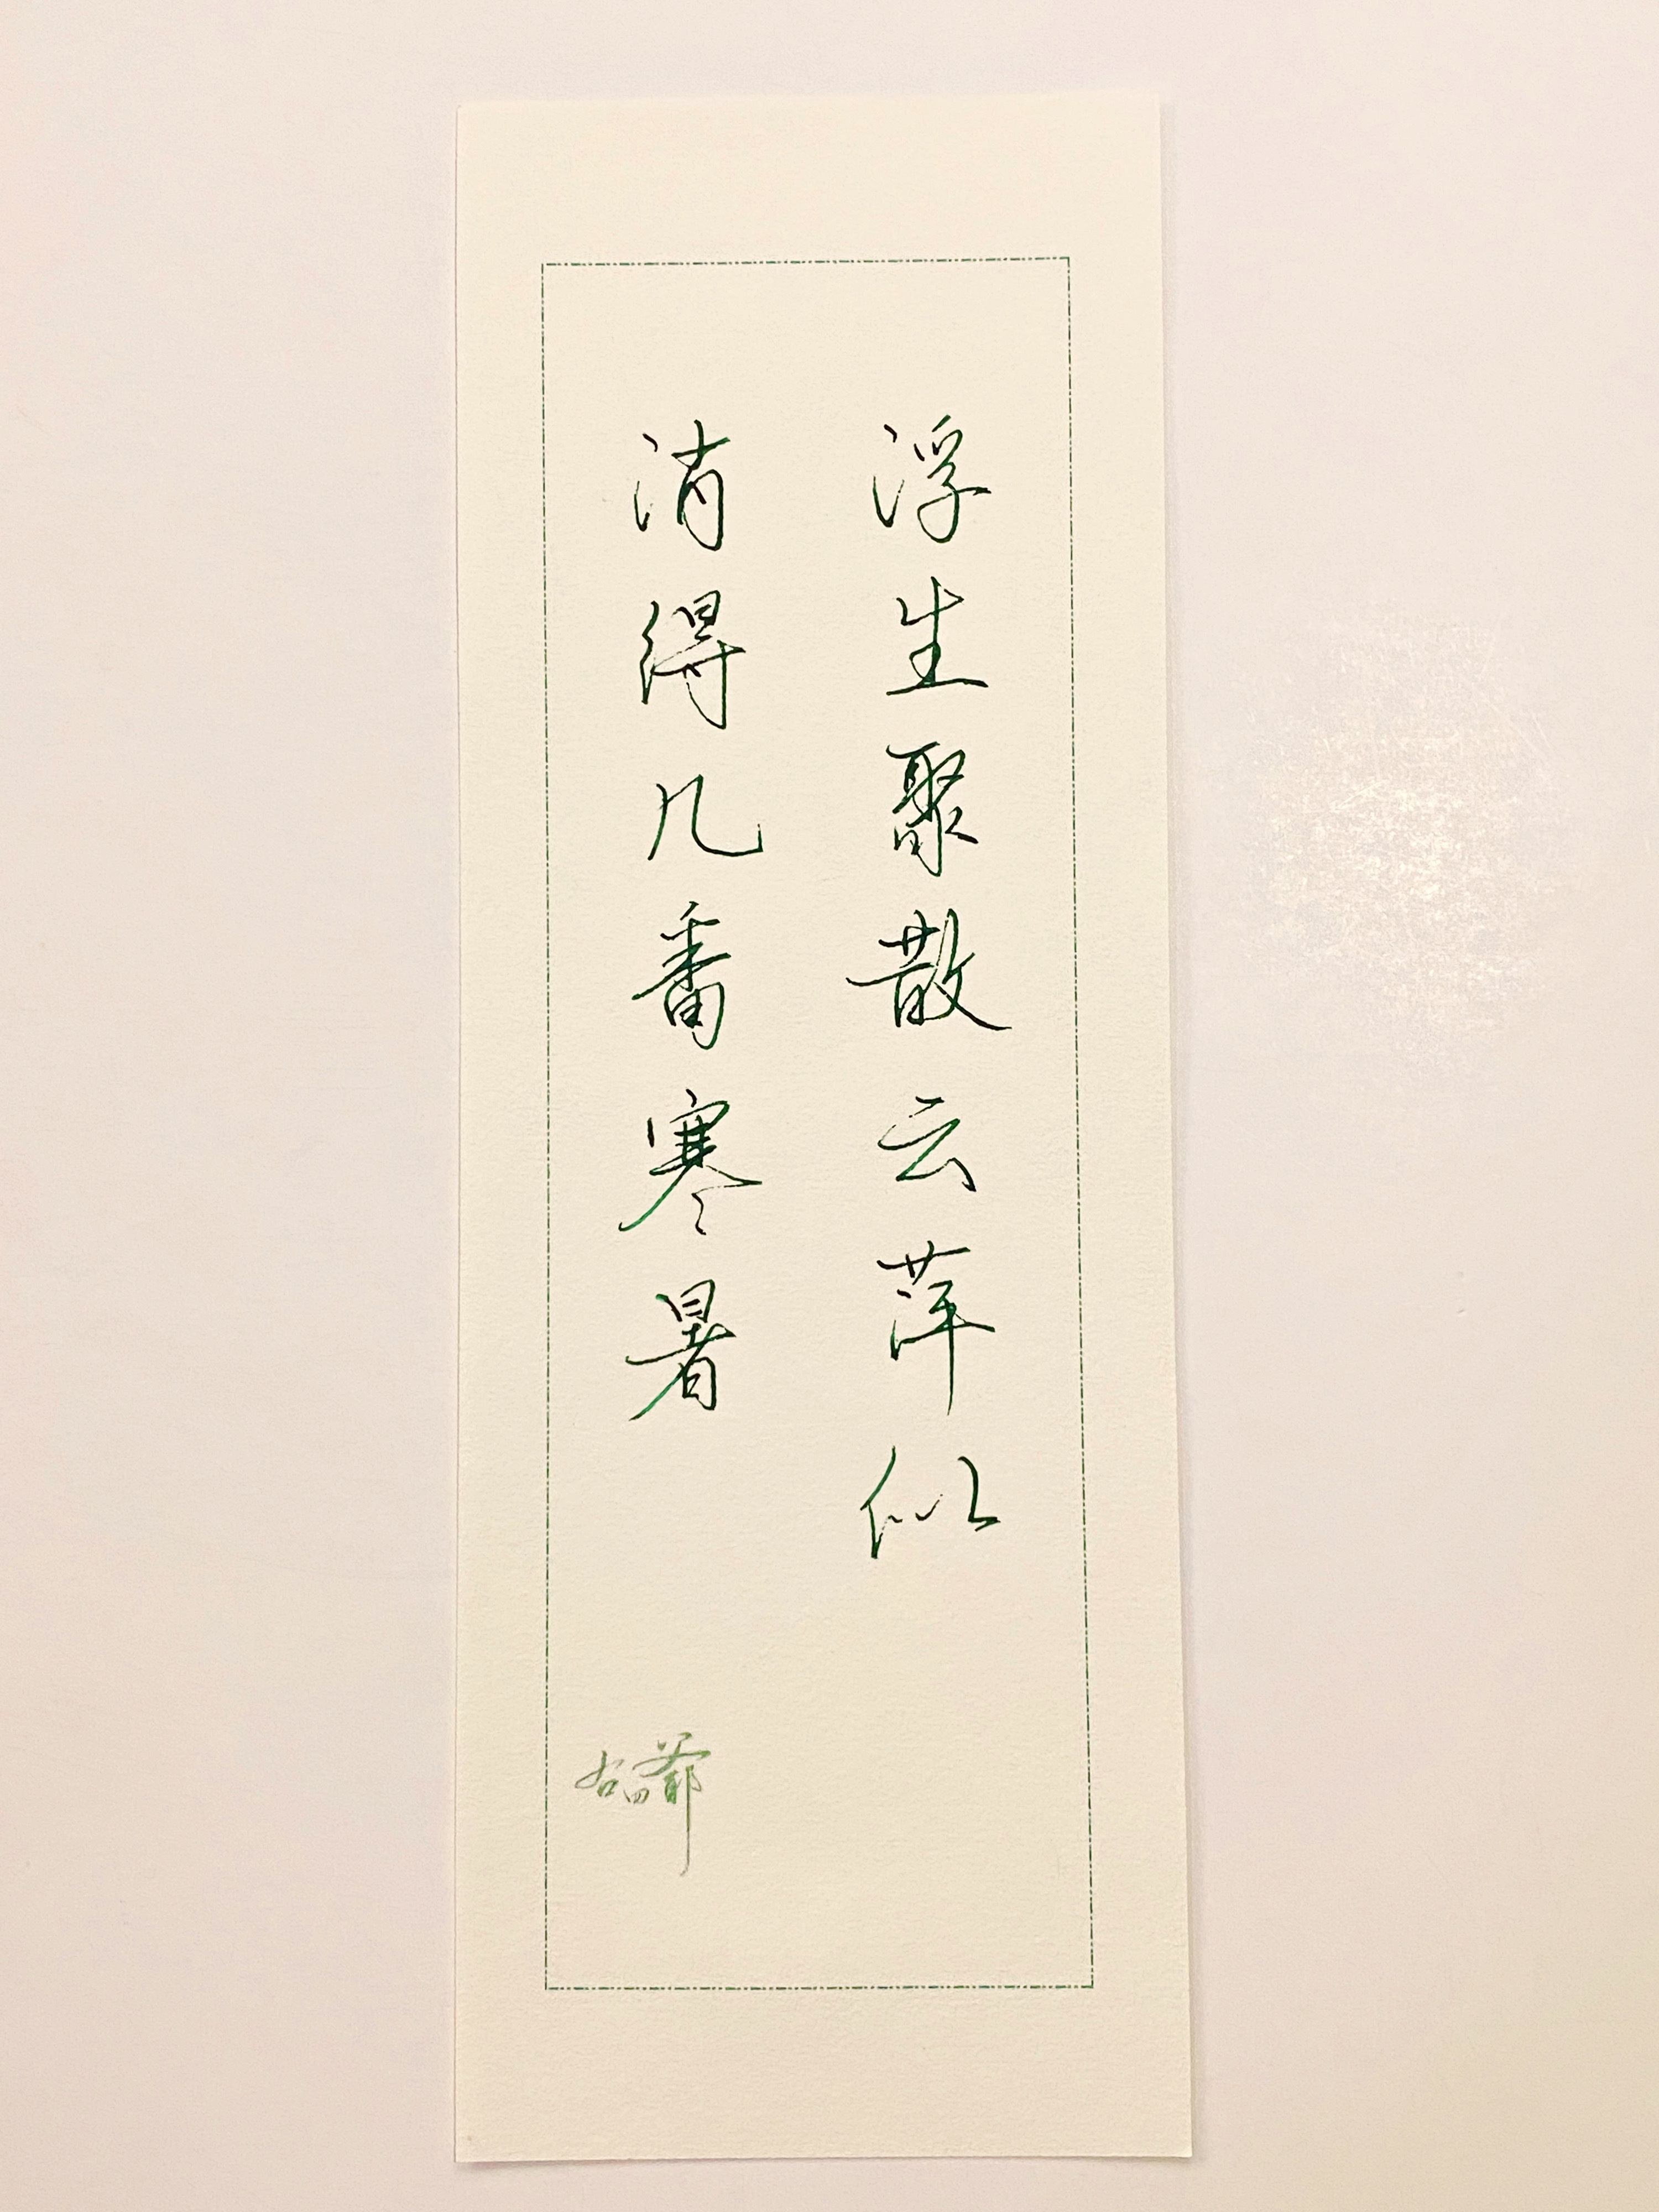 浮生聚散云萍似
消得几番寒暑